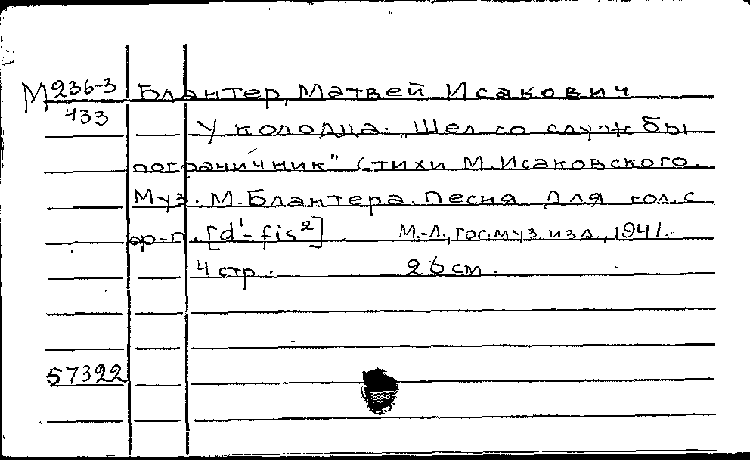 М 236-3
433
Блантер, Матвей Исакович
У колодца. Шел со службы
пограничник" Стихи М. Исаковского.
Муз. М. Блантера. Песня для гол. с
фр-п. [d¹-fis²] М.-Л., Гос. муз. изд., 1941.
4 стр. 26 см.
57322